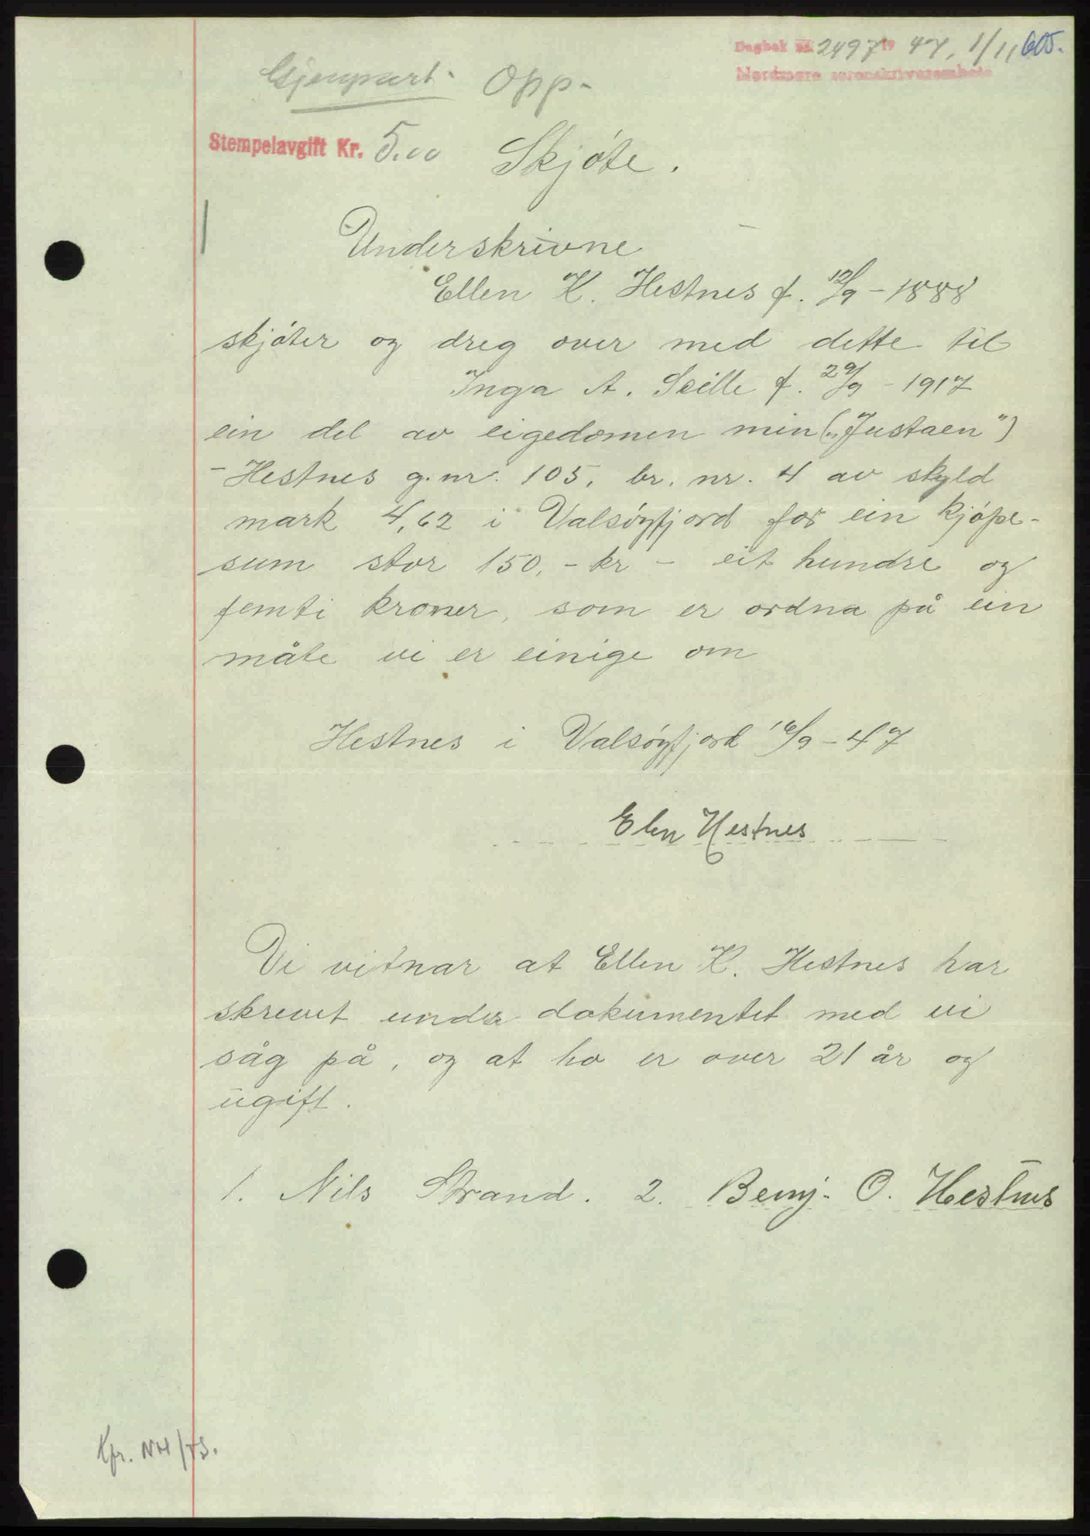 Dagbok nr. 2497 19 47, 1/11 605.
Nordmøre sorenskriverembete
Gjenpart. Opp.
Stempelavgift Kr. 5.00 Skjøte.
Underskrivne
Ellen K. Hestnes f. 12/9 - 1888
skjøter og dreg over med dette til
Inga A. f. 29/9 - 1917
ein del av eigedomen min („Justaen")
- Hestnes g.nr. 105, br. nr. 4 av skyld
mark 4,62 i Valsøyfjord for ein kjøpe-
sum stor 150,- kr - eit hundre og
femti kroner, som er ordna på ein
måte vi er einige om
Hestnes i Valsøyfjord 16/9 - 47
Elen Hestnes
Vi vitnar at Ellen K. Hestnes har
skrevet under dokumentet med vi
såg på, og at ho er over 21 år og
ugift.
1. Nils Strand. 2. Benj. O. Hestnes
Kfr. NH/TS.